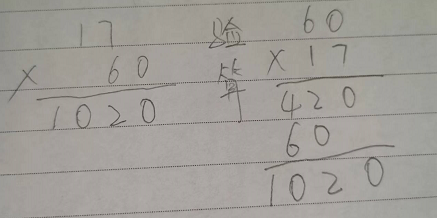 17
× 60
1020
验算
60
× 17
420
60
1020